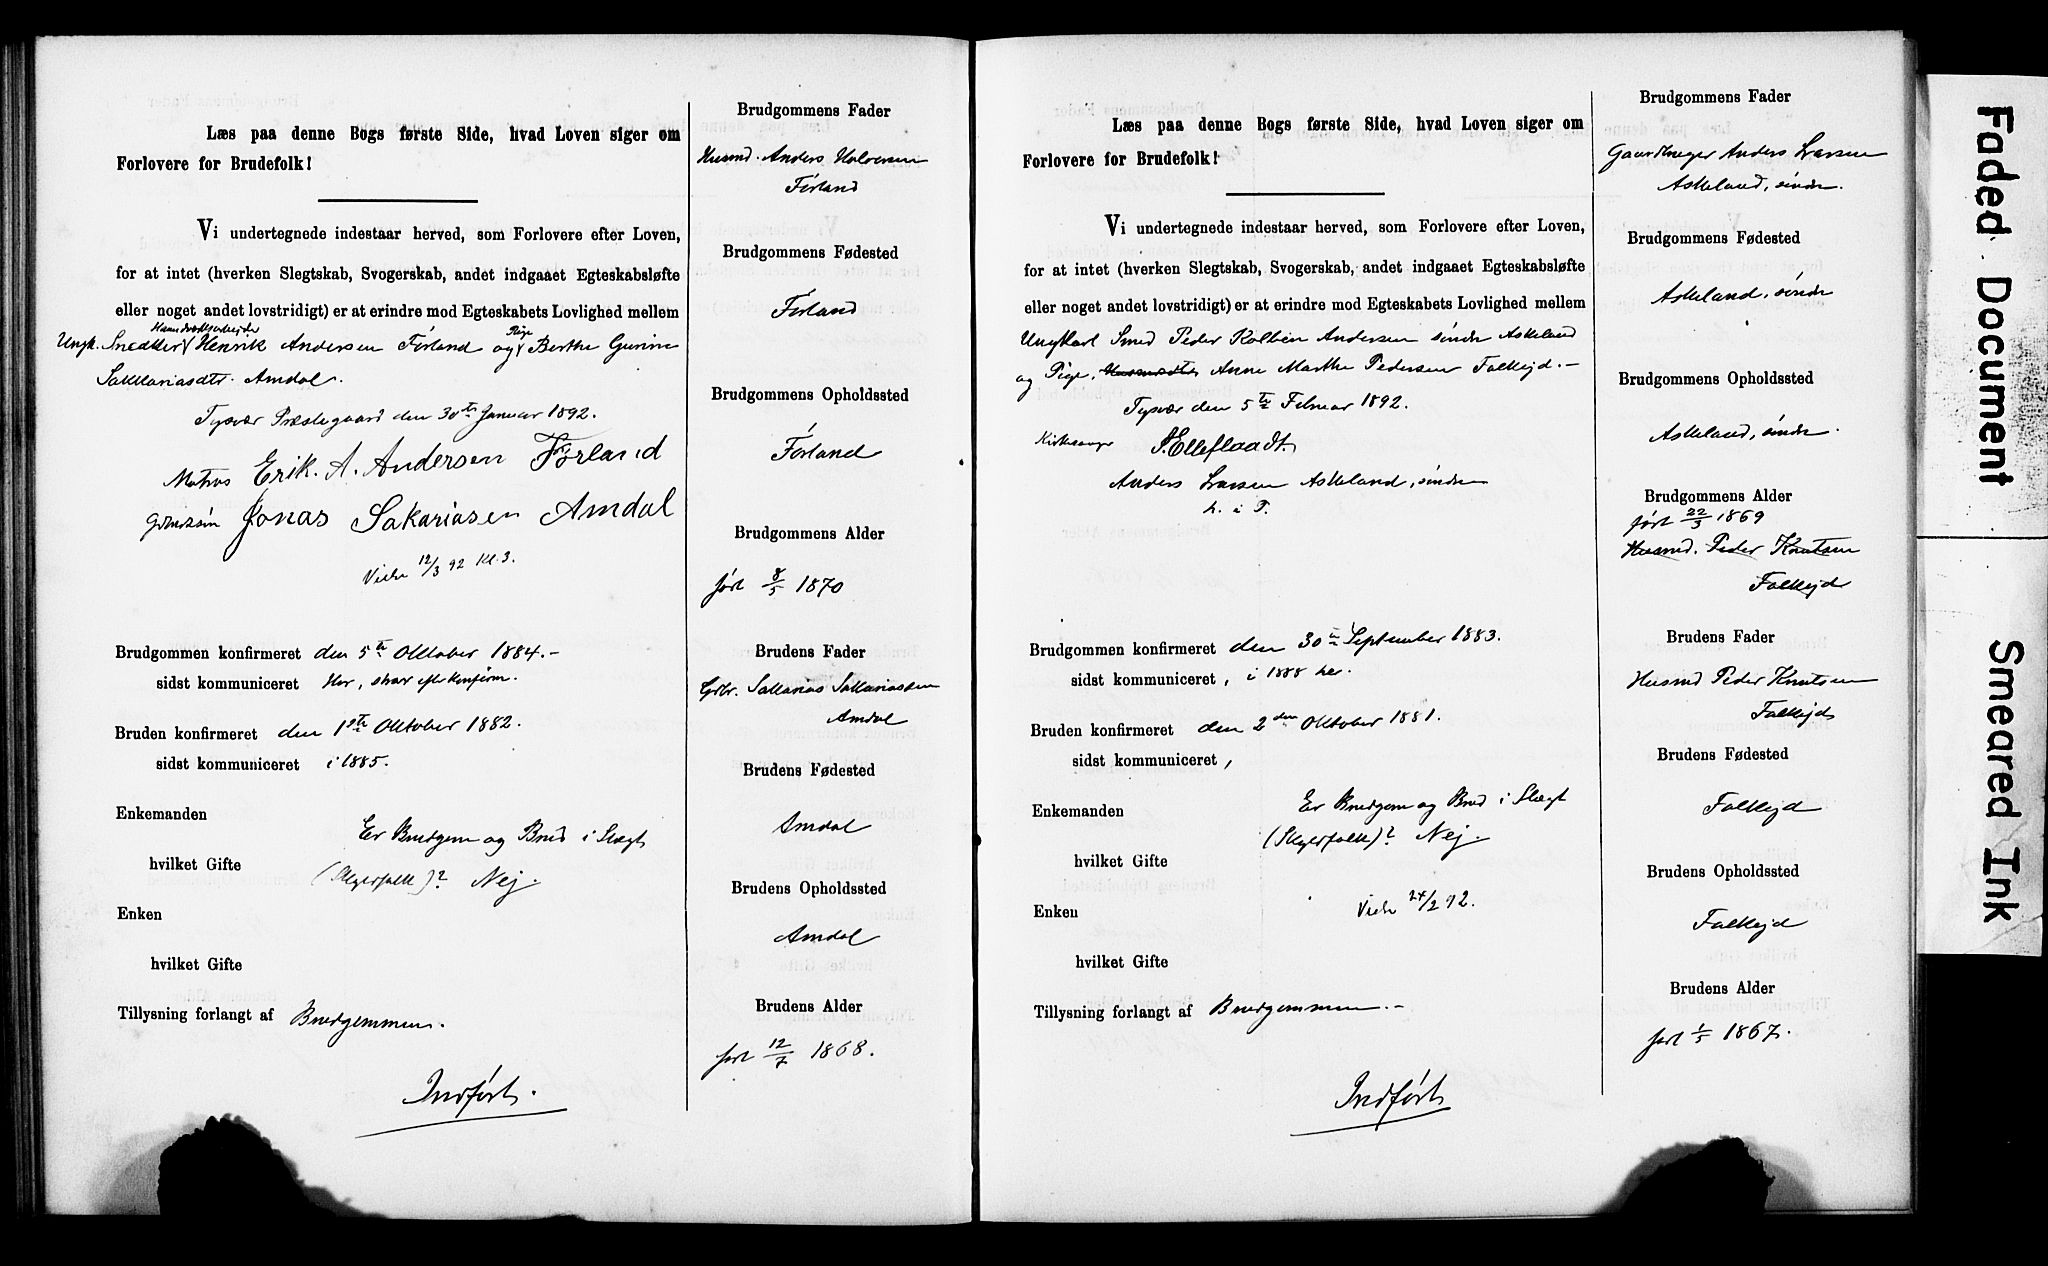 Læs paa denne Bogs første Side, hvad Loven siger om
Forlovere for Brudefolk!
Vi undertegnede indestaar herved, som Forlovere efter Loven,
for at intet (hverken Slegtskab, Svogerskab, andet indgaaet Egteskabsløfte
eller noget andet lovstridigt) er at erindre mod Egteskabets Lovlighed mellem
Haandværksarbeider Pige
Ungk. Snedker Henrik Andersen Førland og Berthe Gurine
Sakkariasdtr. Amdal.
Tysvær Præstegaard den 30te Januar 1892.
Matros Erik. A. Andersen Førland
Jonas Sakariasen Amdal
Viede 12/3 92 Kl. 3.
Brudgommen konfirmeret den 5te Oktober 1884.-
sidst kommuniceret Her, strax efter Konfirm.
Bruden konfirmeret den 1ste Oktober 1882.
sidst kommuniceret i 1885.
Enkemanden
Er Brudgom og Brud i Slægt
hvilket Gifte
(Skyldfolk)? Nej.
Enken
hvilket Gifte
Tillysning forlangt af Brudgommen.
Indført.
Brudgommens Fader
Husmd. Anders Halvorsen
Førland
Brudgommens Fødested
Førland
Brudgommens Opholdssted
Førland
Brudgommens Alder
født 8/5 1870
Brudens Fader
Grbr. Sakkarias Sakkariassen
Amdal
Brudens Fødested
Amdal
Brudens Opholdssted
Amdal
Brudens Alder
født 12/7 1868.
Læs paa denne Bogs første Side, hvad Loven siger om
Forlovere for Brudefolk!
Vi undertegnede indestaar herved, som Forlovere efter Loven,
for at intet (hverken Slegtskab, Svogerskab, andet indgaaet Egteskabsløfte
eller noget andet lovstridigt) er at erindre mod Egteskabets Lovlighed mellem
Ungkarl Smed Peder Kolbein Andersen søndre Askeland
og Pige, Anne Marthe Pedersen Falkejd.-
Tysvær den 5te Februar 1892.
Kirkesanger S. Elleflaadt.
Anders Larsen Askeland, søndre
h. i P.
Brudgommen konfirmeret den 30te September 1883.
sidst kommuniceret, i 1888 her.
Bruden konfirmeret den 2den Oktober 1881.
sidst kommuniceret,
Enkemanden
Er Brudgom og Brud i Slægt
(Skyldfolk)? Nej.
hvilket Gifte
Enken
Viede 24/2 92.
hvilket Gifte
Tillysning forlangt af Brudgommen.-
Indført
Brudgommens Fader
Gaardbruger Anders Larsen
Askeland, søndre.
Brudgommens Fødested
Askeland, søndre
Brudgommens Opholdssted
Askeland, søndre.
Brudgommens Alder
født 22/3 1869
Husmd. Peder Knutsen
Falkejd
Brudens Fader
Husmd Peder Knutsen
Falkejd
Brudens Fødested
Falkejd
Brudens Opholdssted
Falkejd
Brudens Alder
født 1/5 1867.
Faded Document
Smeared Ink